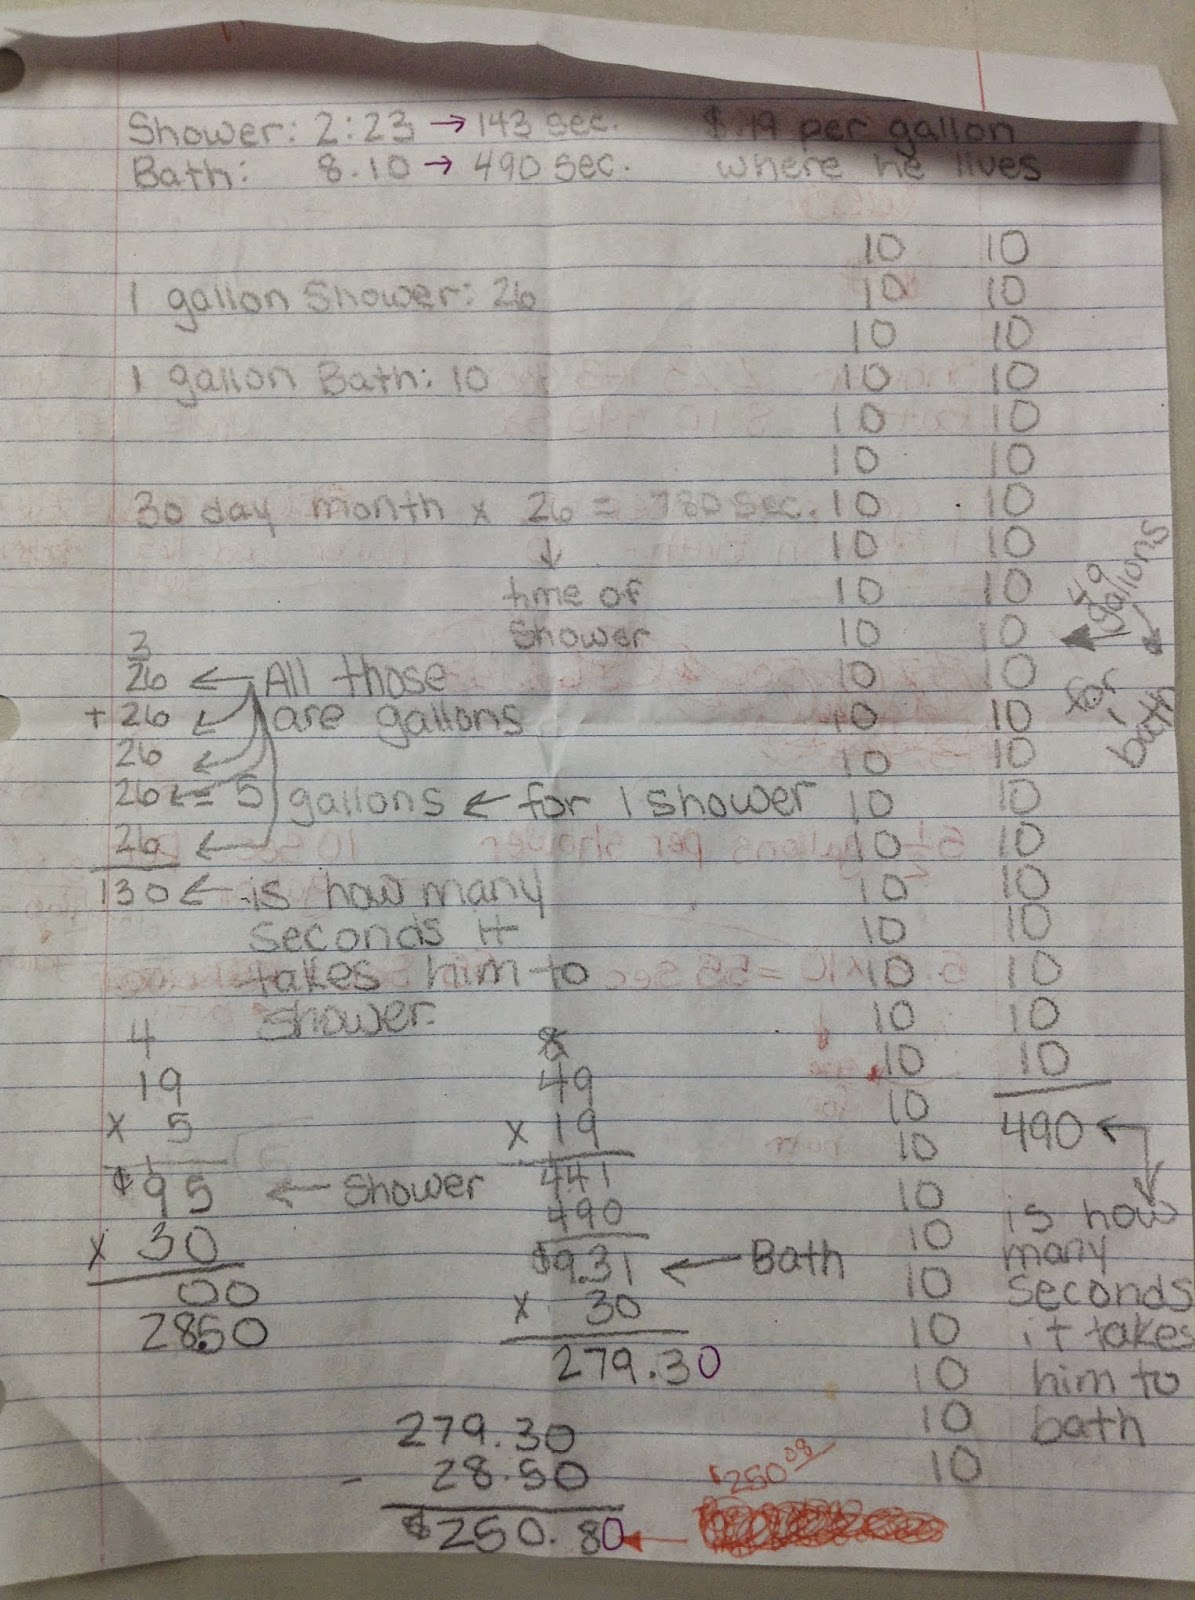 Shower: 2:23 → 143 sec. $.19 per gallon
Bath: 8.10 → 490 sec. where he lives
1 gallon Shower: 26
1 gallon Bath: 10
30 day month x 26 = 780 sec.
↓
time of
shower
3
26 ← All those
+ 26 are gallons
26
26 = 5 gallons ← for 1 shower
26
130 ← is how many
seconds it
takes him to
shower.
4
19
x 5
$95 ← shower
x 30
00
28.50
8
49
x 19
441
490
$9.31 ← Bath
x 30
279.30
279.30
- 28.50
$250.80
$250
10
10
10
10
10
10
10
10
10
10
10
10
10
10
10
10
10
10
10
10
10
10
10
10
10
10
10
10
10
10
10
10
10
10
10
10
10
10
10
10
10
10
10
10
10
10
10
10
10
490
49
gallons
for
1
bath
is how
many
seconds
it takes
him to
bath